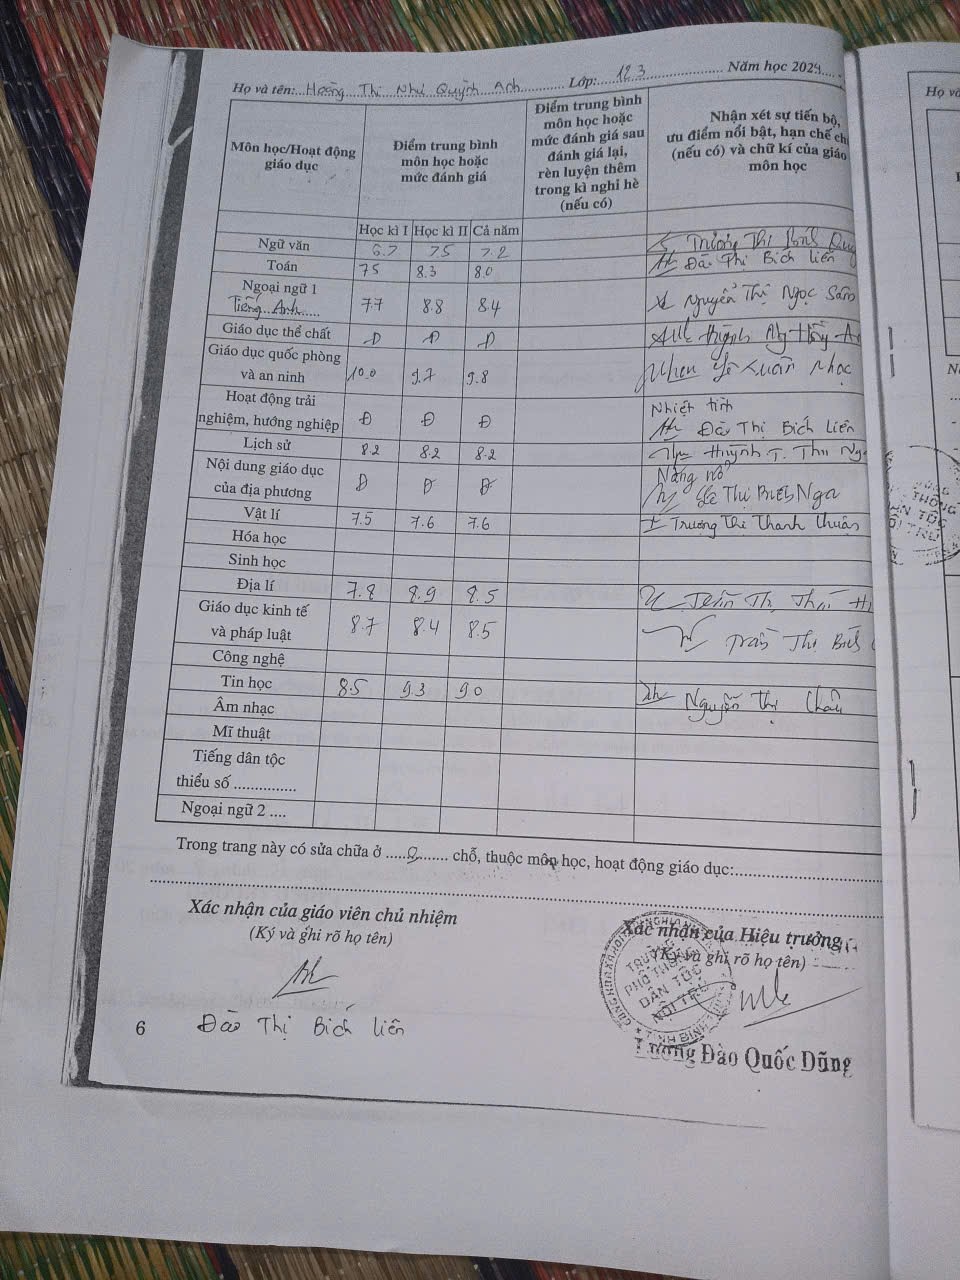 Họ và tên:...Hoàng Thị Như Quỳnh Anh............ Lớp:....12.3.................... Năm học 2024.....
Môn học/Hoạt động giáo dục
Điểm trung bình môn học hoặc mức đánh giá
Điểm trung bình môn học hoặc mức đánh giá sau đánh giá lại, rèn luyện thêm trong kì nghỉ hè (nếu có)
Nhận xét sự tiến bộ,
ưu điểm nổi bật, hạn chế ch
(nếu có) và chữ kí của giáo
môn học
Học kì I Học kì II Cả năm
Ngữ văn 6.7 7.5 7.2 Trương Thị
Toán 7.5 8.3 8.0 Đào Thị Bích Liên
Ngoại ngữ 1
Tiếng Anh...... 7.7 8.8 8.4 Nguyễn Thị Ngọc Sâm
Giáo dục thể chất Đ Đ Đ Huỳnh
Giáo dục quốc phòng
và an ninh 10.0 9.7 9.8 Lê Xuân Nhọc
Hoạt động trải Nhiệt tình
nghiệm, hướng nghiệp Đ Đ Đ Đào Thị Bích Liên
Lịch sử 8.2 8.2 8.2 Huỳnh T. Thu
Nội dung giáo dục Năng nổ
của địa phương Đ Đ Đ Lê Thị Nga
Vật lí 7.5 7.6 7.6 Trương Thị Thanh Thuận
Hóa học
Sinh học
Địa lí 7.8 8.9 8.5 Trần Thị
Giáo dục kinh tế
và pháp luật 8.7 8.4 8.5 Trần Thị Bích
Công nghệ
Tin học 8.5 9.3 9.0 Nguyễn Thị Châu
Âm nhạc
Mĩ thuật
Tiếng dân tộc
thiểu số ...............
Ngoại ngữ 2 ....
Trong trang này có sửa chữa ở .....0....... chỗ, thuộc môn học, hoạt động giáo dục:
Xác nhận của giáo viên chủ nhiệm
(Ký và ghi rõ họ tên)
Xác nhận của Hiệu trưởng
(Ký và ghi rõ họ tên)
TRƯỜNG
PHỔ THÔNG
DÂN TỘC
NỘI TRÚ
6 Đào Thị Bích Liên
Lương Đào Quốc Dũng
Họ và